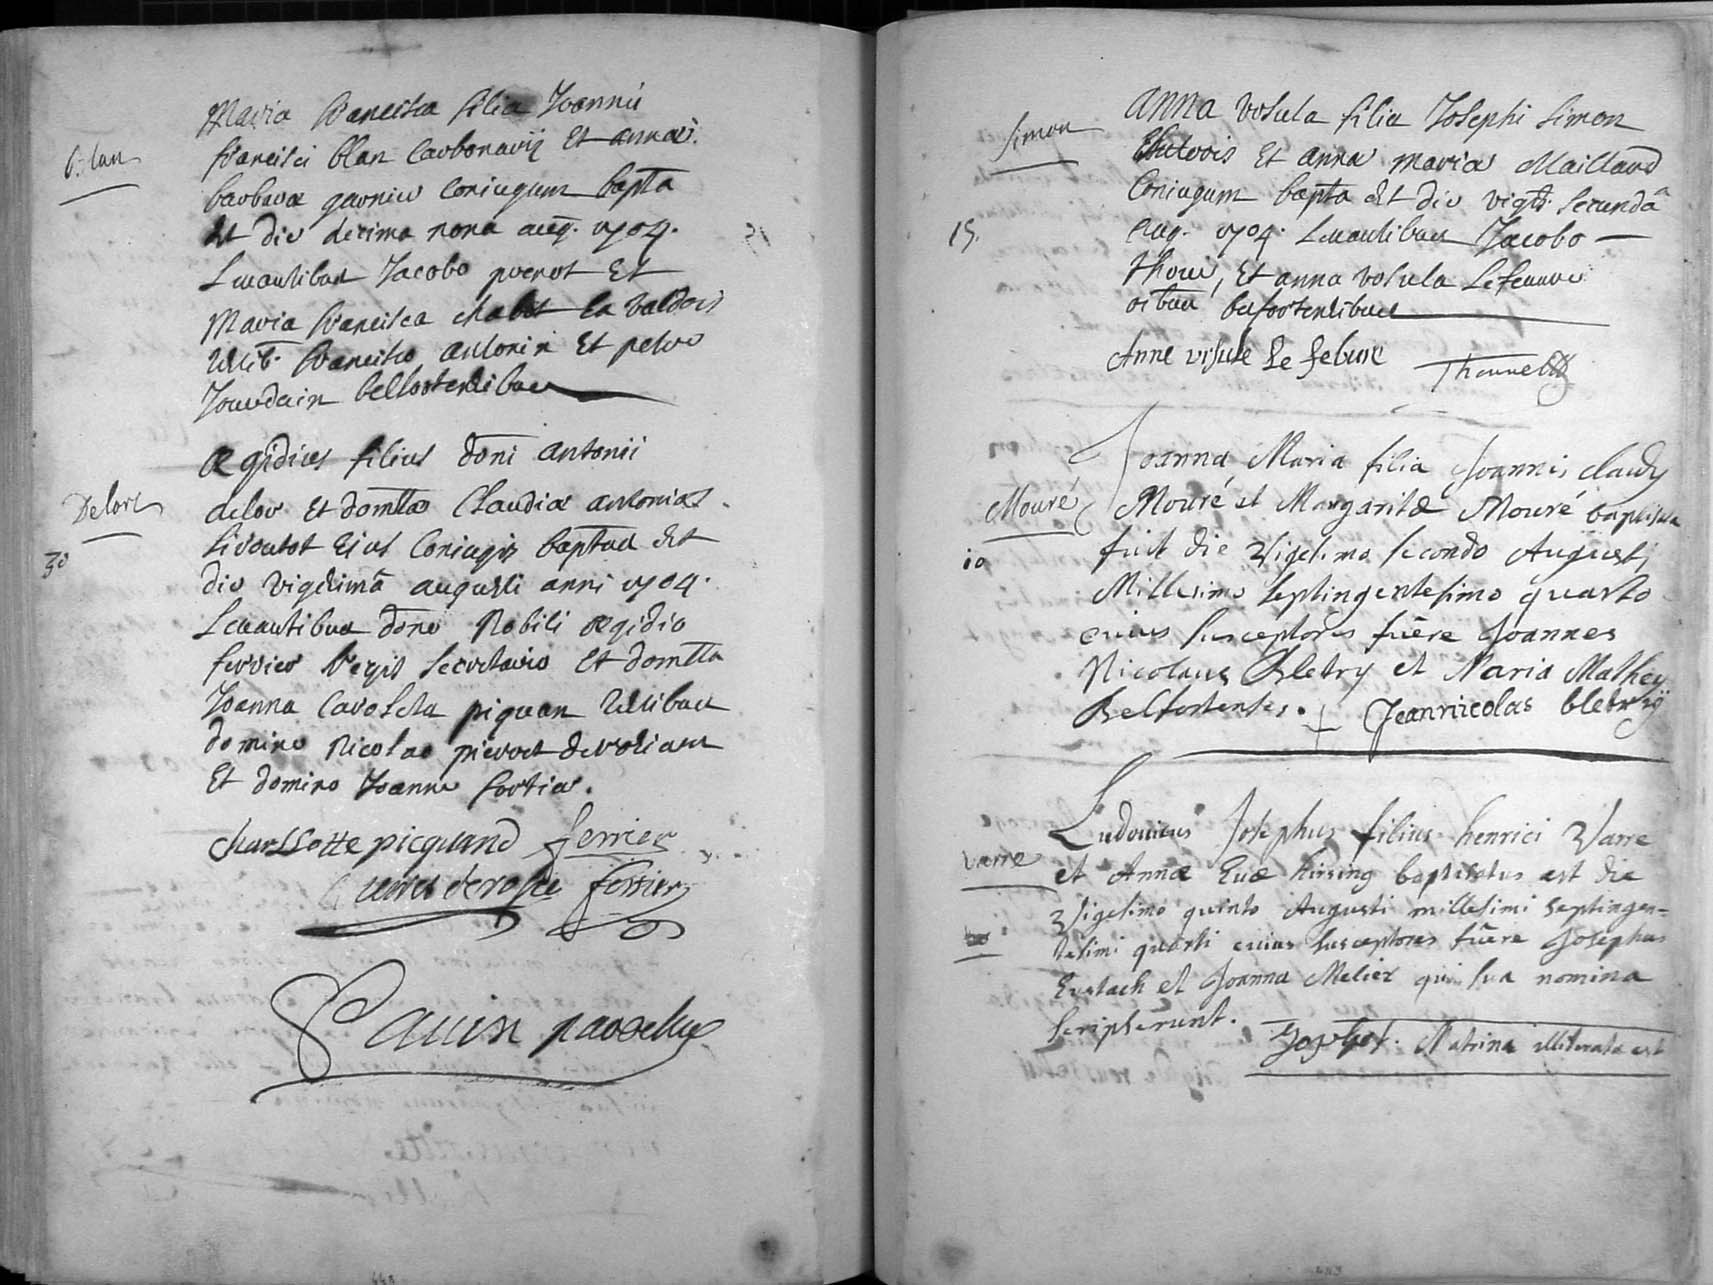 Blan
Maria Francisca filia Joannis
Francisci Blan Carbonarij Et annæ
barbaræ garnier Coniugum bapta
est die decima nona aug. 1704.
Levantibus Jacobo poerot Et
Maria Francisca chabot la valdois
testib. Francisco antonin Et petro
Jourdain belfortensibus
Delort
30
ægidius filius doni antonii
delor Et domlæ Claudiæ antoniæ
eius Coniugis baptus est
die vigesimâ augusti anni 1704.
Levantibus dono Nobili ægidio
ferrier Regis secretario Et domlla
Joanna Caroleta piquan testibus
domino Nicolao
Et domino Joanne fortier.
charLotte picquand ferrier
ferrier
parochus
Simon
15.
Anna Vrsula filia Josephi Simon
Et anna maria Maillard
Coniugum bapta est die vigis. secundâ
aug. 1704. Levantibus Jacobo
Et anna vrsula Lefeuure
oibus belfortensibus
Anne ursule Le febure
Mouré
10
Joanna Maria filia Joannis claudij
Mouré et Margaritæ Mouré baptisata
fuit die Vigesimo secondo Augusti
Millesimo septingentesimo quarto
cuius susceptores fuêre Joannes
Nicolaus Bletry et Maria Mathey
Belfortenses. + Jeannicolas bletry
Varre
Ludovicus Josephus filius henrici Varre
et Annæ Evæ hirsing baptisatus est die
Vigesimo quinto Augusti millesimi septingen=
tesimi quarti cuius susceptores fuêre Josephus
Eustach et Joanna Melier qui sua nomina
scripserunt.
Matrina illiterata est